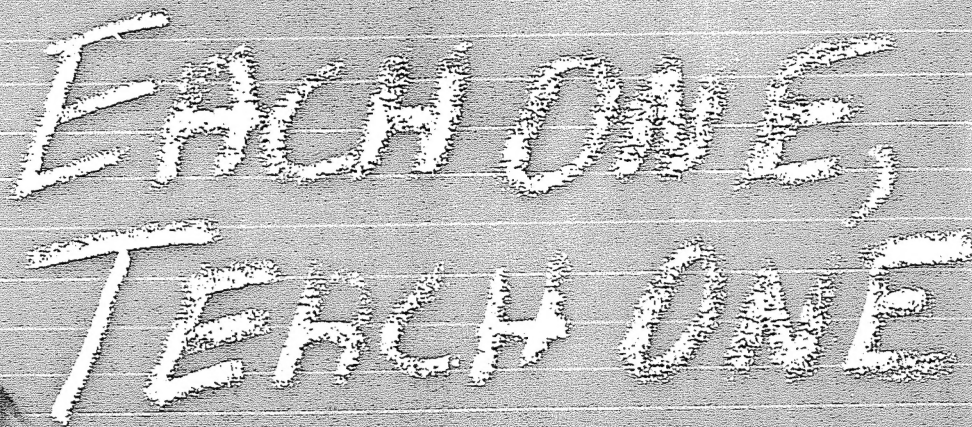 EACH ONE,
TEACH ONE